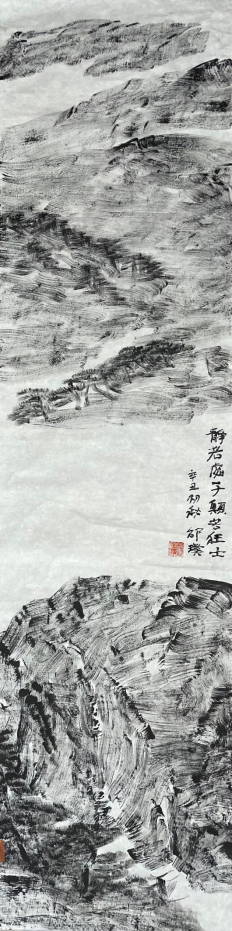 静若處子顛若狂士
辛丑初秋邵璞